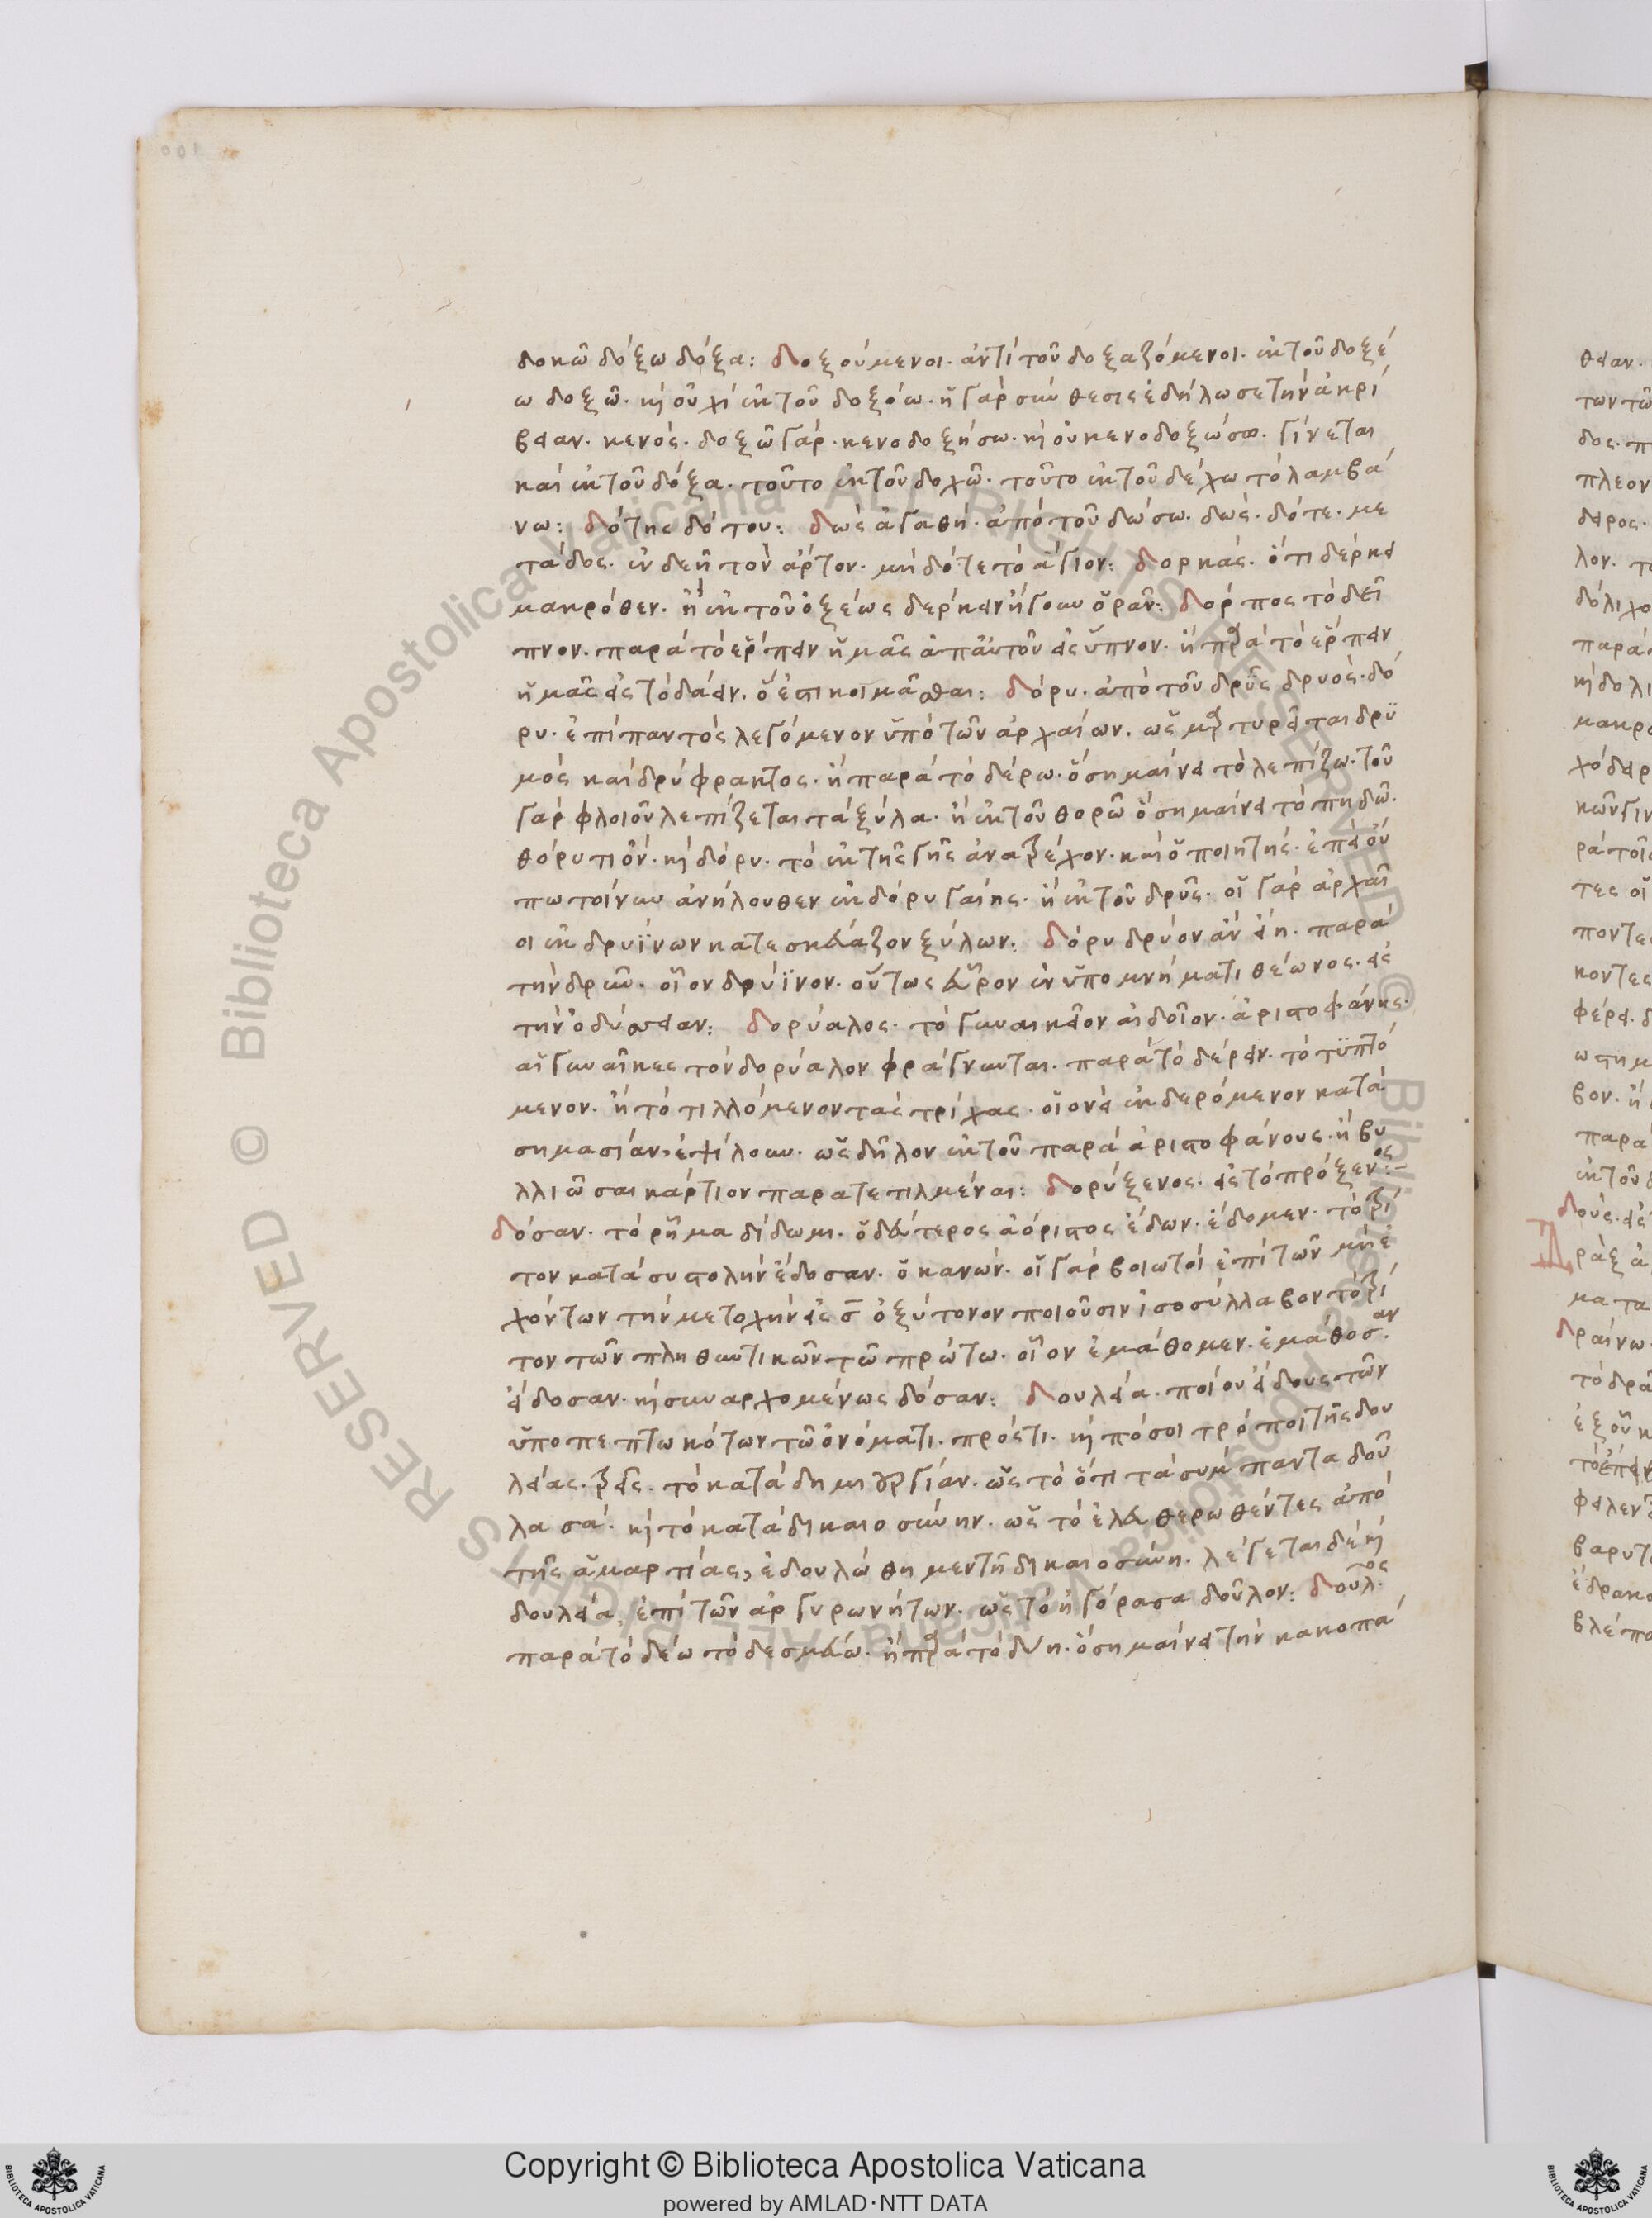 δοκῶ δόξω δόξα: δοξούμενοι· ἀντὶ τοῦ δοξαζόμενοι· ἐκ τοῦ δοξέ
ω δοξῶ· καὶ οὐχὶ ἐκ τοῦ δοξόω· ἡ γὰρ σύνθεσις ἐδήλωσε τὴν ἀκρί
βειαν· κενός· δοξῶ γάρ· κενοδοξήσω· καὶ οὐ κενοδοξώσω· γίνεται
καὶ ἐκ τοῦ δόξα· τοῦτο ἐκ τοῦ δοχῶ· τοῦτο ἐκ τοῦ δέχω τὸ λαμβά
νω: δότης δότου: δὼς ἀγαθή· ἀπὸ τοῦ δώσω· δώς· δότε· με
τάδος· ἐνδεῆ τὸν ἄρτον· μὴ δότε τὸ ἅγιον: δορκάς· ὅτι δέρκει
μακρόθεν· ἢ ἐκ τοῦ ὀξέως δέρκειν ἤγουν ὁρᾶν: δόρπος τὸ δεῖ
πνον· παρὰ τὸ ἕρπειν ἡμᾶς ἀπ αὐτοῦ εἰς ὕπνον· ἢ παρὰ τὸ ἕρπειν
ἡμᾶς εἰς τὸ δάειν· ὅ ἐστι κοιμᾶσθαι: δόρυ· ἀπὸ τοῦ δρῦς δρυός· δό
ρυ· ἐπὶ παντὸς λεγόμενον ὑπὸ τῶν ἀρχαίων· ὡς μαρτυρεῖται δρυ
μός καὶ δρύφρακτος· ἢ παρὰ τὸ δέρω· ὃ σημαίνει τὸ λεπίζω· τοῦ
γὰρ φλοιοῦ λεπίζεται τὰ ξύλα· ἢ ἐκ τοῦ θορῶ ὃ σημαίνει τὸ πηδῶ·
θόρυ τι ὄν· καὶ δόρυ· τὸ ἐκ τῆς γῆς ἀνατρέχον· καὶ ὁ ποιητής· ἐπεὶ οὔ
πω τοῖνυν ἀνήλουθεν ἐκ δόρυ γαίης· ἢ ἐκ τοῦ δρῦς· οἱ γὰρ ἀρχαῖ
οι ἐκ δρυΐνων κατεσκεύαζον ξύλων: δόρυ δρύον ἂν εἴη· παρὰ
τὴν δρῦν· οἷον δρύϊνον· οὕτως εὗρον ἐν ὑπομνήματι θέωνος· εἰς
τὴν ὀδύσσειαν: δορύαλος· τὸ γυναικεῖον αἰδοῖον· ἀριστοφάνης·
αἱ γυναῖκες τὸν δορύαλον φράγνυνται· παρὰ τὸ δέρειν· τὸ τυπτό
μενον· ἢ τὸ τιλλόμενον τὰς τρίχας· οἱονεὶ ἐκδερόμενον κατὰ
σημασίαν, ἐψίλουν· ὡς δῆλον ἐκ τοῦ παρὰ ἀριστοφάνους· ἢ βυ
λλιῶσαι κάρτιον παρατετιλμέναι: δορύξενος· εἰς τὸ πρόξενος:–
δόσαν· τὸ ρῆμα δίδωμι· ὁ δεύτερος ἀόριστος ἔδων· ἔδομεν· τὸ τρί
τον κατὰ συστολὴν ἔδοσαν· ὁ κανών· οἱ γὰρ βοιωτοὶ ἐπὶ τῶν μὴ ἐ
χόντων τὴν μετοχὴν εἰς σ ὀξύτονον ποιοῦσιν ἰσοσύλλαβον τὸ τρί
τον τῶν πληθυντικῶν τῶ πρώτω· οἷον ἐμάθομεν· ἐμάθοσαν·
εἴδοσαν· καὶ συναρχομένως δόσαν: δουλεία· ποῖον εἶδους τῶν
ὑποπεπτωκότων τῶ ὀνόματι· πρός τι· καὶ πόσοι τρόποι τῆς δου
λείας· τρεῖς· τὸ κατὰ δημιουργίαν· ὡς τὸ ὅτι τὰ σύμπαντα δοῦ
λα σά· καὶ τὸ κατὰ δικαιοσύνην· ὡς τὸ ἐλευθερωθέντες ἀπὸ
τῆς ἁμαρτίας, ἐδουλώθημεν τῇ δικαιοσύνη· λέγεται δὲ καὶ
δουλεία, ἐπὶ τῶν ἀργυρωνήτων· ὡς τὸ ἠγόρασα δοῦλον: δοῦλος
παρὰ τὸ δέω τὸ δεσμεύω· ἢ παρὰ τὸ δύη· ὃ σημαίνει τὴν κακοπά
Copyright © Biblioteca Apostolica Vaticana
powered by AMLAD·NTT DATA